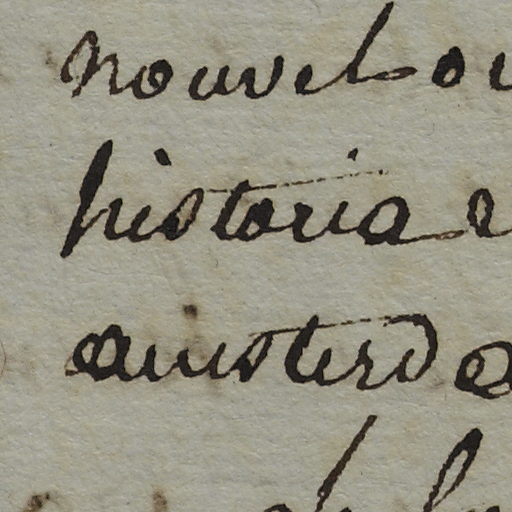 nouvel ou
historia e
amsterda